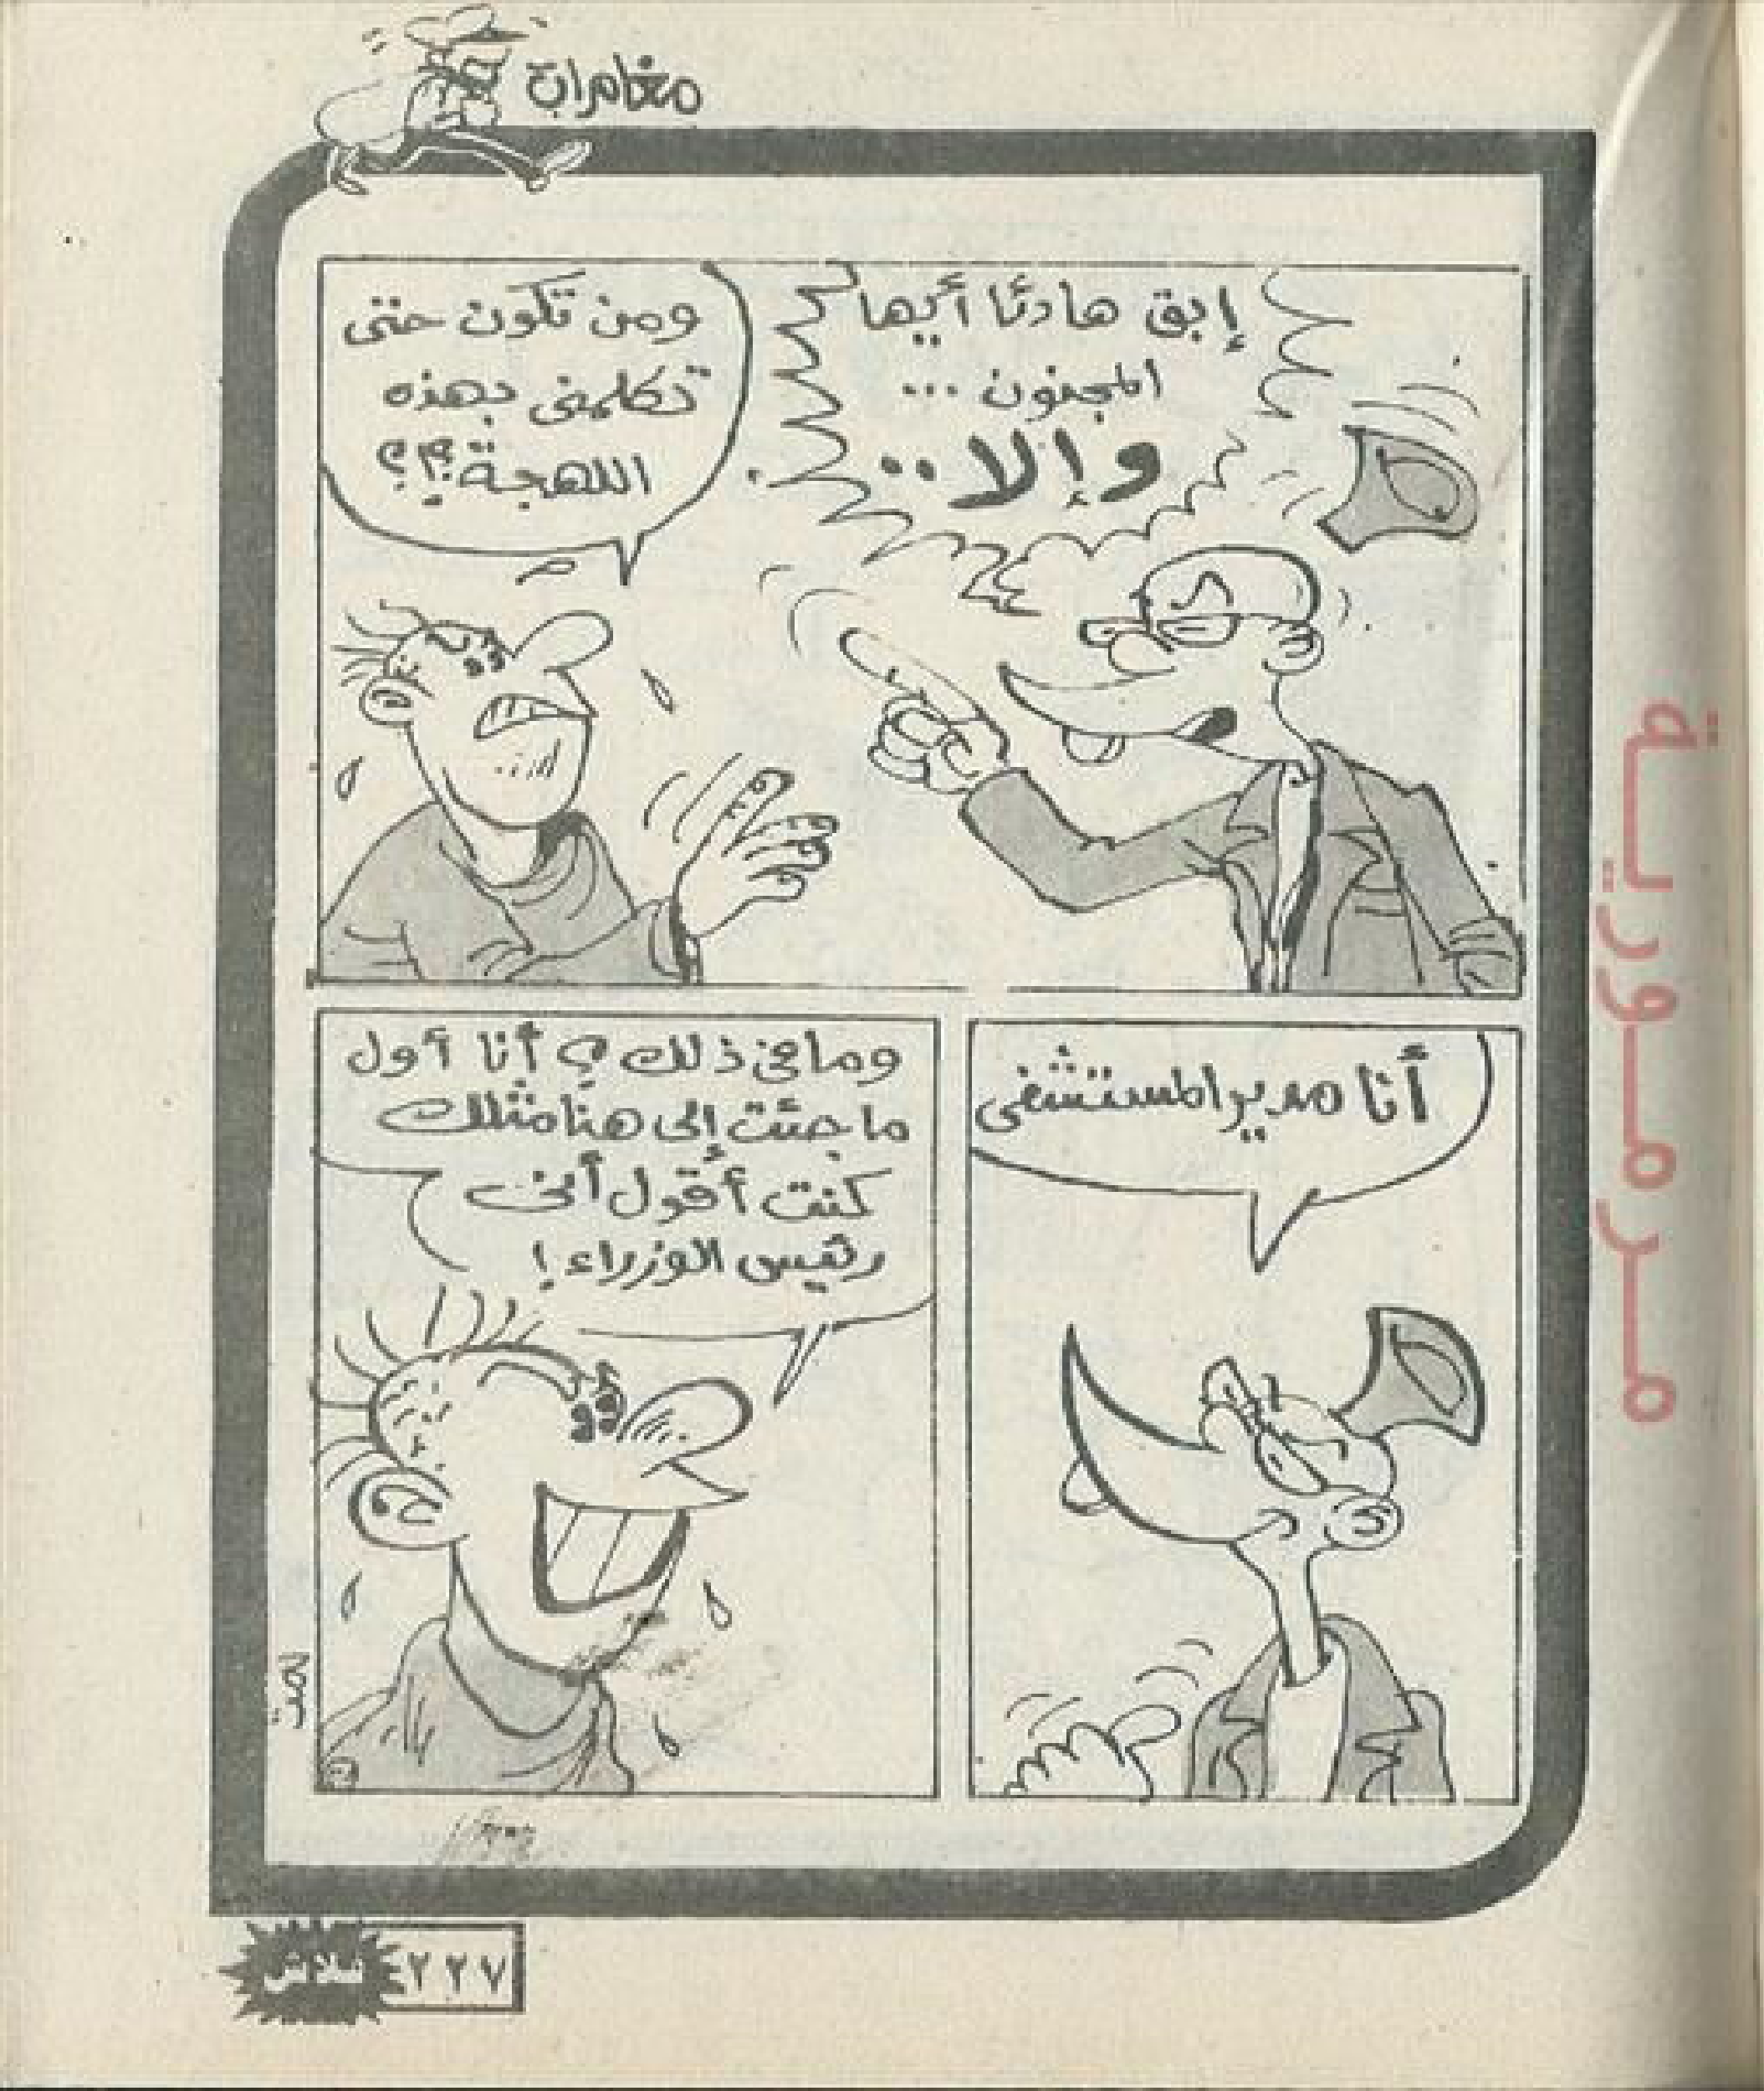 مغامرات
إبق هادئا أيها
المجنون ...
وإلا ..
ومن تكون حتى
تكلمنى بهذه
اللهجة؟!؟
أنا مدير المستشفى
وما فى ذلك؟ أنا أول
ما جئت إلى هنا مثلك
كنت أقول أنى
رئيس الوزراء!
فلاش
٢٢٧
مرمورية